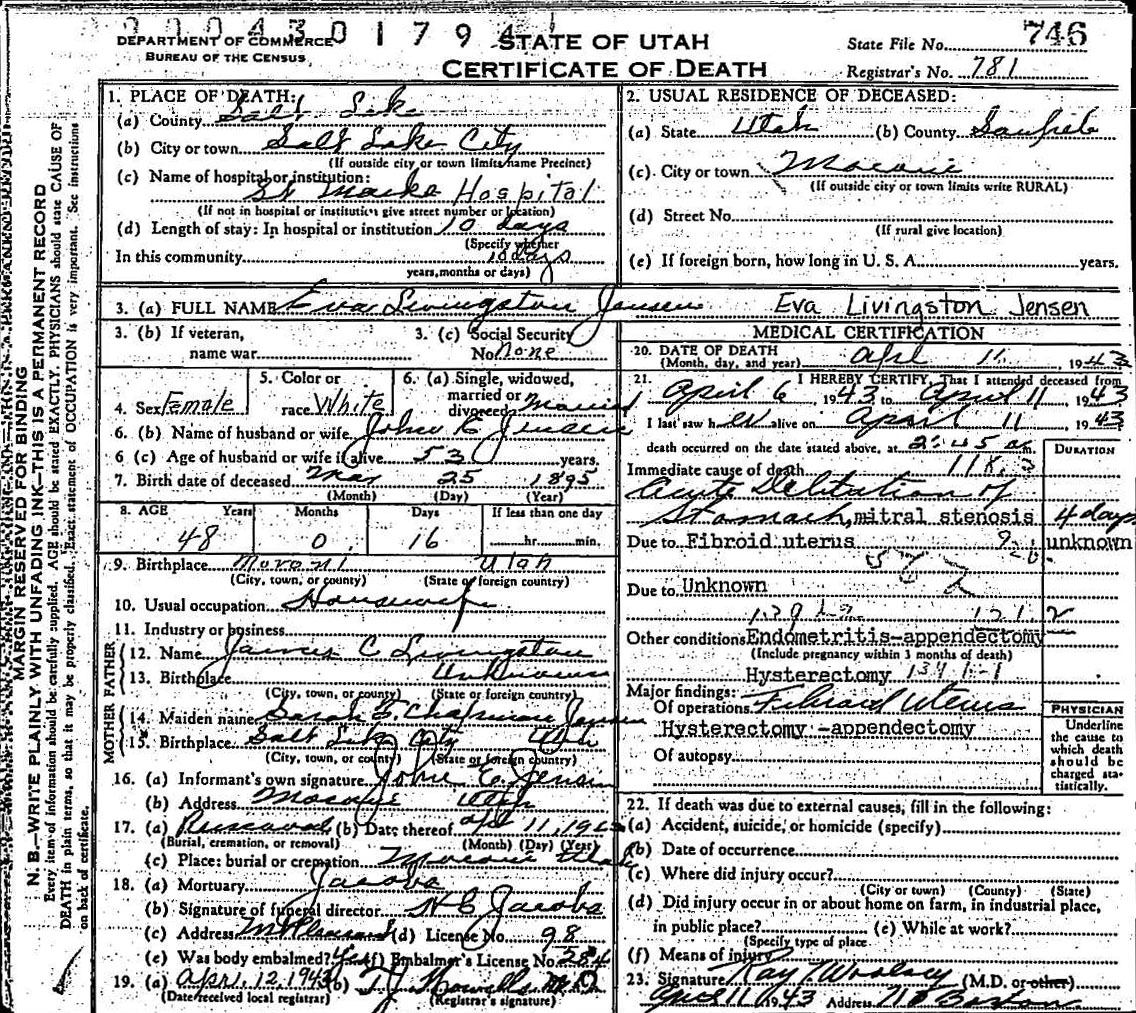 0 0 0 4 3 0 1 7 9 4
DEPARTMENT OF COMMERCE
BUREAU OF THE CENSUS
STATE OF UTAH
CERTIFICATE OF DEATH
State File No. 746
Registrar's No. 781
MARGIN RESERVED FOR BINDING
N. B.—WRITE PLAINLY WITH UNFADING INK—THIS IS A PERMANENT RECORD
Every item of information should be carefully supplied. AGE should be stated EXACTLY. PHYSICIANS should state CAUSE OF
DEATH in plain terms, so that it may be properly classified. Exact statement of OCCUPATION is very important. See instructions
on back of certificate.
1. PLACE OF DEATH:
(a) County Salt Lake
(b) City or town Salt Lake City
(If outside city or town limits name Precinct)
(c) Name of hospital or institution:
St Marks Hospital
(If not in hospital or institution give street number or location)
(d) Length of stay: In hospital or institution 10 days
(Specify whether
In this community 10 days
years, months or days)
2. USUAL RESIDENCE OF DECEASED:
(a) State Utah (b) County
(c) City or town
(If outside city or town limits write RURAL)
(d) Street No.
(If rural give location)
(e) If foreign born, how long in U. S. A. years.
3. (a) FULL NAME Eva Livingston Jensen Eva Livingston Jensen
3. (b) If veteran,
name war
3. (c) Social Security
No. None
4. Sex Female
5. Color or
race White
6. (a) Single, widowed,
married or
divorced Married
6. (b) Name of husband or wife John E Jensen
6 (c) Age of husband or wife if alive 53 years.
7. Birth date of deceased Mar 25 1895
(Month) (Day) (Year)
8. AGE Years Months Days If less than one day
48 0 16 hr. min.
9. Birthplace Moroni Utah
(City, town, or county) (State or foreign country)
10. Usual occupation Housewife
11. Industry or business
FATHER
12. Name James C Livingston
13. Birthplace Unknown
(City, town, or county) (State or foreign country)
MOTHER
14. Maiden name Sarah E. Chapman Jensen
15. Birthplace Salt Lake City Utah
(City, town, or county) (State or foreign country)
16. (a) Informant's own signature John E Jensen
(b) Address Utah
17. (a) Removal (b) Date thereof Apr 11, 19
(Burial, cremation, or removal) (Month) (Day) (Year)
(c) Place: burial or cremation Utah
18. (a) Mortuary Jacobs
(b) Signature of funeral director H C Jacobs
(c) Address Mt Pleasant (d) License No. 98
(e) Was body embalmed? Yes (f) Embalmer's License No. 284
19. (a) Apr. 12, 1943 (b) M.D.
(Date received local registrar) (Registrar's signature)
MEDICAL CERTIFICATION
20. DATE OF DEATH
(Month, day, and year) Apr 11, 1943
21. I HEREBY CERTIFY, That I attended deceased from
April 6 1943 to April 11 1943
I last saw h er alive on April 11, 1943
death occurred on the date stated above, at 2:45 m.
DURATION
Immediate cause of death
Acute Dilitation of
Stomach, mitral stenosis 4 days
Due to Fibroid uterus unknown
Due to Unknown
Other conditions Endometritis-appendectomy
(Include pregnancy within 3 months of death)
Hysterectomy
Major findings:
Of operations Fibroid Uterus
Hysterectomy -appendectomy
Of autopsy
PHYSICIAN
Underline
the cause to
which death
should be
charged sta-
tistically.
22. If death was due to external causes, fill in the following:
(a) Accident, suicide, or homicide (specify)
(b) Date of occurrence
(c) Where did injury occur?
(City or town) (County) (State)
(d) Did injury occur in or about home on farm, in industrial place,
in public place? (e) While at work?
(Specify type of place
(f) Means of injury
23. Signature Ray T Woolsey (M.D. or other)
April 11 1943 Address